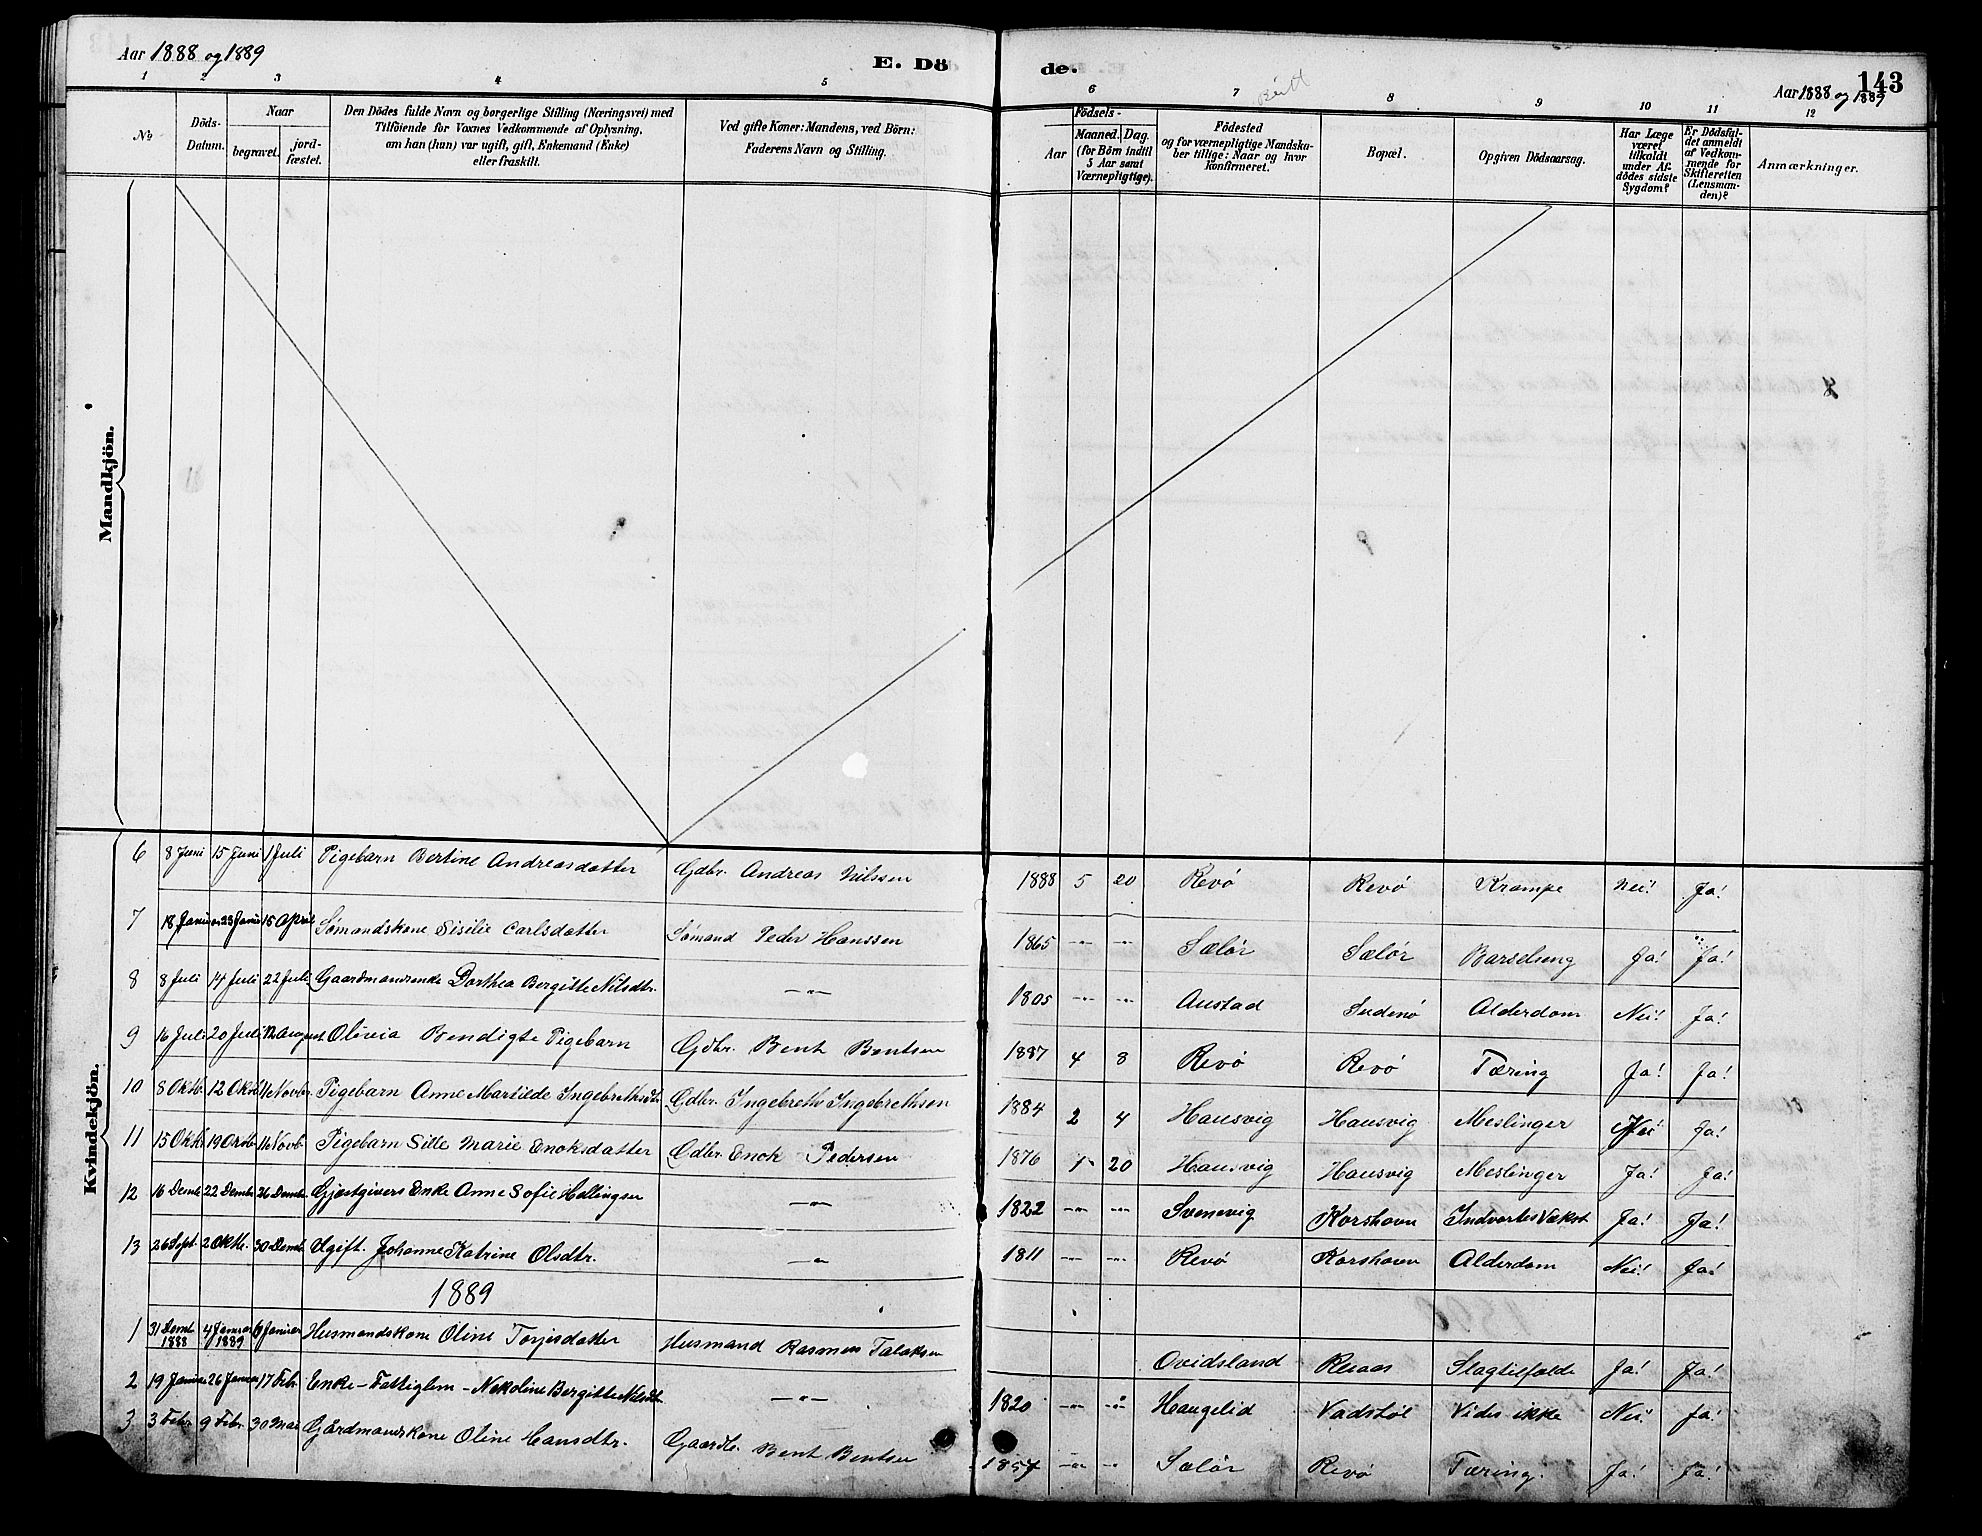 Aar 1888 og 1889
E. Dö
de.
143
Aar 1888 og 1889
1 2 3 4 5 6 7 8 9 10 11 12
No
Döds-Datum.
Naar
begravet.
jord-fæstet.
Den Dödes fulde Navn og borgerlige Stilling (Næringsvei) med
Tilföiende for Voxnes Vedkommende af Oplysning,
om han (hun) var ugift, gift, Enkemand (Enke)
eller fraskilt.
Ved gifte Koner: Mandens, ved Börn:
Faderens Navn og Stilling.
Födsels-
Aar
Maaned. Dag.
(for Börn indtil
5 Aar samt
Værnepligtige).
Födested
og for værnepligtige Mandska-
ber tillige: Naar og hvor
konfirmeret.
Bopæl.
Opgiven Dödsaarsag.
Har Læge
været
tilkaldt
under Af-
dödes sidste
Sygdom?
Er Dödsfal-
det anmeldt
af Vedkom-
mende for
Skifteretten
(Lensman-
den)?
Anmærkninger.
Mandkjön.
Kvindekjön.
6 8 Juni 15 Juni 1 Juli Pigebarn Bertine Andreasdatter Gdbr. Andreas Nilssen 1888 5 20 Revø Revø Krampe Nei! Ja!
7 18 Januar 23 Januar 15 April Sømandskone Sisilie Carlsdatter Sømand Peder Hanssen 1865 -"- -"- Sælør Sælør Barselseng Ja! Ja!
8 8 Juli 14 Juli 22 Juli Gaardmandsenke Dorthea Bergitte Nilsdtr. -"- 1805 -"- -"- Austad Indenø Alderdom Nei! Ja!
9 16 Juli 20 Juli 12 August Olivia Bendigte Pigebarn Gdbr. Bent Bentsen 1887 4 8 Revø Revø Tæring Ja! Ja!
10 8 Oktb. 12 Oktb. 11 Novbr. Pigebarn Anne Martilde Ingebrethsdtr. Gdbr. Ingebreth Ingebrethsen 1884 2 4 Hausvig Hausvig Meslinger Nei! Ja!
11 15 Oktb. 19 Oktb. 11 Novb. Pigebarn Sille Marie Enoksdatter Gdbr. Enok Pedersen 1876 1 20 Hausvig Hausvig Meslinger Ja! Ja!
12 16 Dembr 22 Dembr 26 Dembr Gjæstgivers Enke Anne Sofie Hellingsen -"- 1822 -"- -"- Svenevig Korshavn Indvortes Vækst Ja! Ja!
13 26 Sept. 2 Oktb. 30 Demb Ugift. Johanne Katrine Olsdtr. -"- 1811 -"- -"- Revø Korshavn Alderdom Nei! Ja!
1889
1 31 Demb 1888 4 Januar 1889 6 Januar Husmandskone Oline Torjesdatter Husmand Rasmus Talaksen Ovidsland Reraas Slagtilfælde Ja! Ja!
2 19 Januar 26 Januar 17 Febr. Enke - Fattiglem - Nekoline Bergitte Nilsdtr. -"- 1820 -"- -"- Haugelid Vadstøl Vides ikke Nei! Ja!
3 3 Febr. 9 Febr. 30 Mai Gårdmandskone Oline Hansdtr. Gaardbr. Bent Bentsen 1857 -"- -"- Sælør Revø Tæring. Ja! Ja!